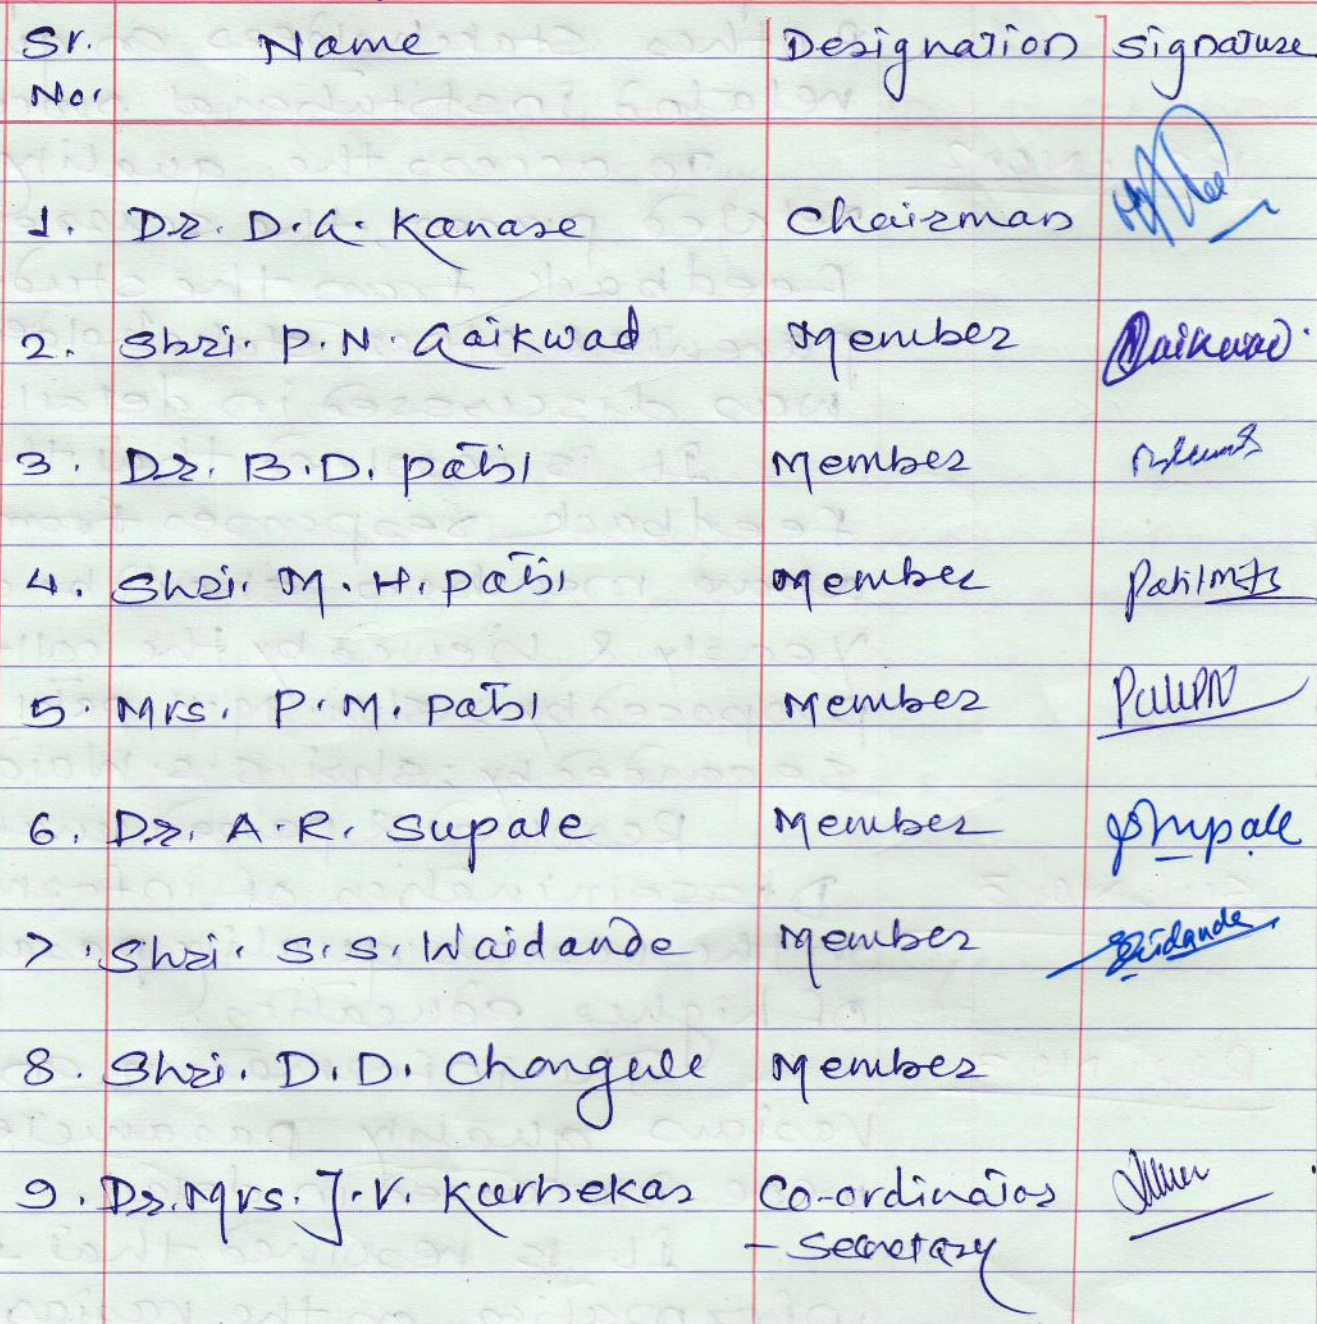 Sr. Name Designation Signature
No.
1. Dr. D.G. Kanase Chairman
2. Shri. P.N. Gaikwad Member Gaikwad
3. Dr. B.D. Patil Member
4. Shri. M.H. Patil Member Patil MH
5. Mrs. P.M. Patil Member
6. Dr. A.R. Supale Member Supale
7. Shri. S.S. Waidande Member Waidande
8. Shri. D.D. Chougule Member
9. Dr. Mrs. J.V. Kurhekar Co-ordinator
- Secretary